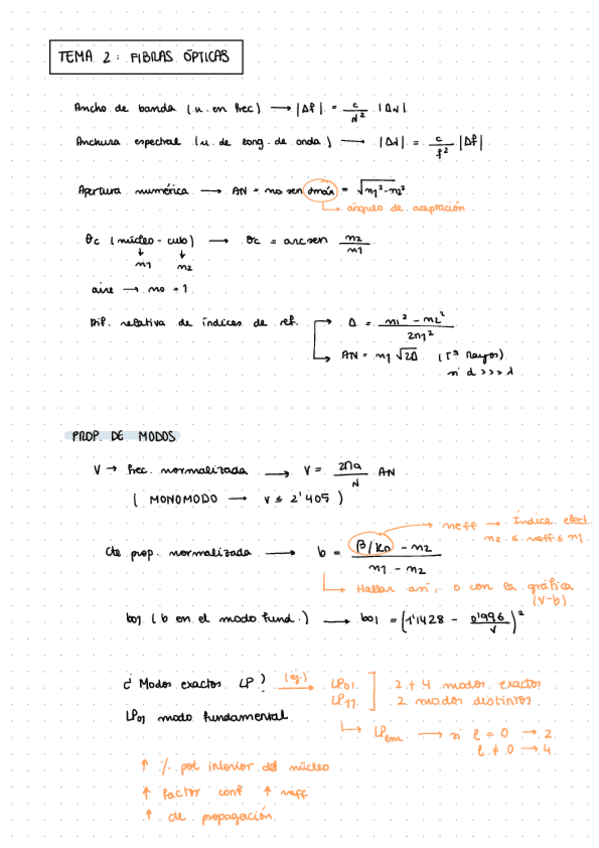 TEMA 2: FIBRAS ÓPTICAS
Ancho de banda (u. en frec) → |Δf| = c/λ² · |Δλ|
Anchura espectral (u. de long. de onda) → |Δλ| = c/f² |Δf|
Apertura numérica → AN = no sen αmáx = √(n1² - n2²)
↳ ángulo de aceptación
θc (núcleo - cub) → θc = arcsen n2/n1
↓ n1 ↓ n2
aire → no = 1
Dif. relativa de índices de ref. → Δ = (n1² - n2²)/2n1²
↳ AN = n1 √2Δ (Tª Rayos)
si d >>> λ
PROP. DE MODOS
V → frec. normalizada → V = 2πa/λ AN
( MONOMODO → V ≤ 2'405 )
→ neff → Índice efect.
n2 ≤ neff ≤ n1
Cte prop. normalizada → b = (β/K0 - n2)/(n1 - n2)
↳ Hallar así, o con la gráfica
(V-b)
b01 (b en el modo fund.) → b01 = (1'1428 - 0'996/V)²
¿ Modos exactos LP ? (ej.) → LP01 ] 2 + 4 modos exactos
LP11 ] 2 modos distintos
LP01 modo fundamental
↳ LPlm → si l = 0 → 2
l ≠ 0 → 4
↑ % pot interior del núcleo
↑ factor conf ↑ neff
↑ de propagación